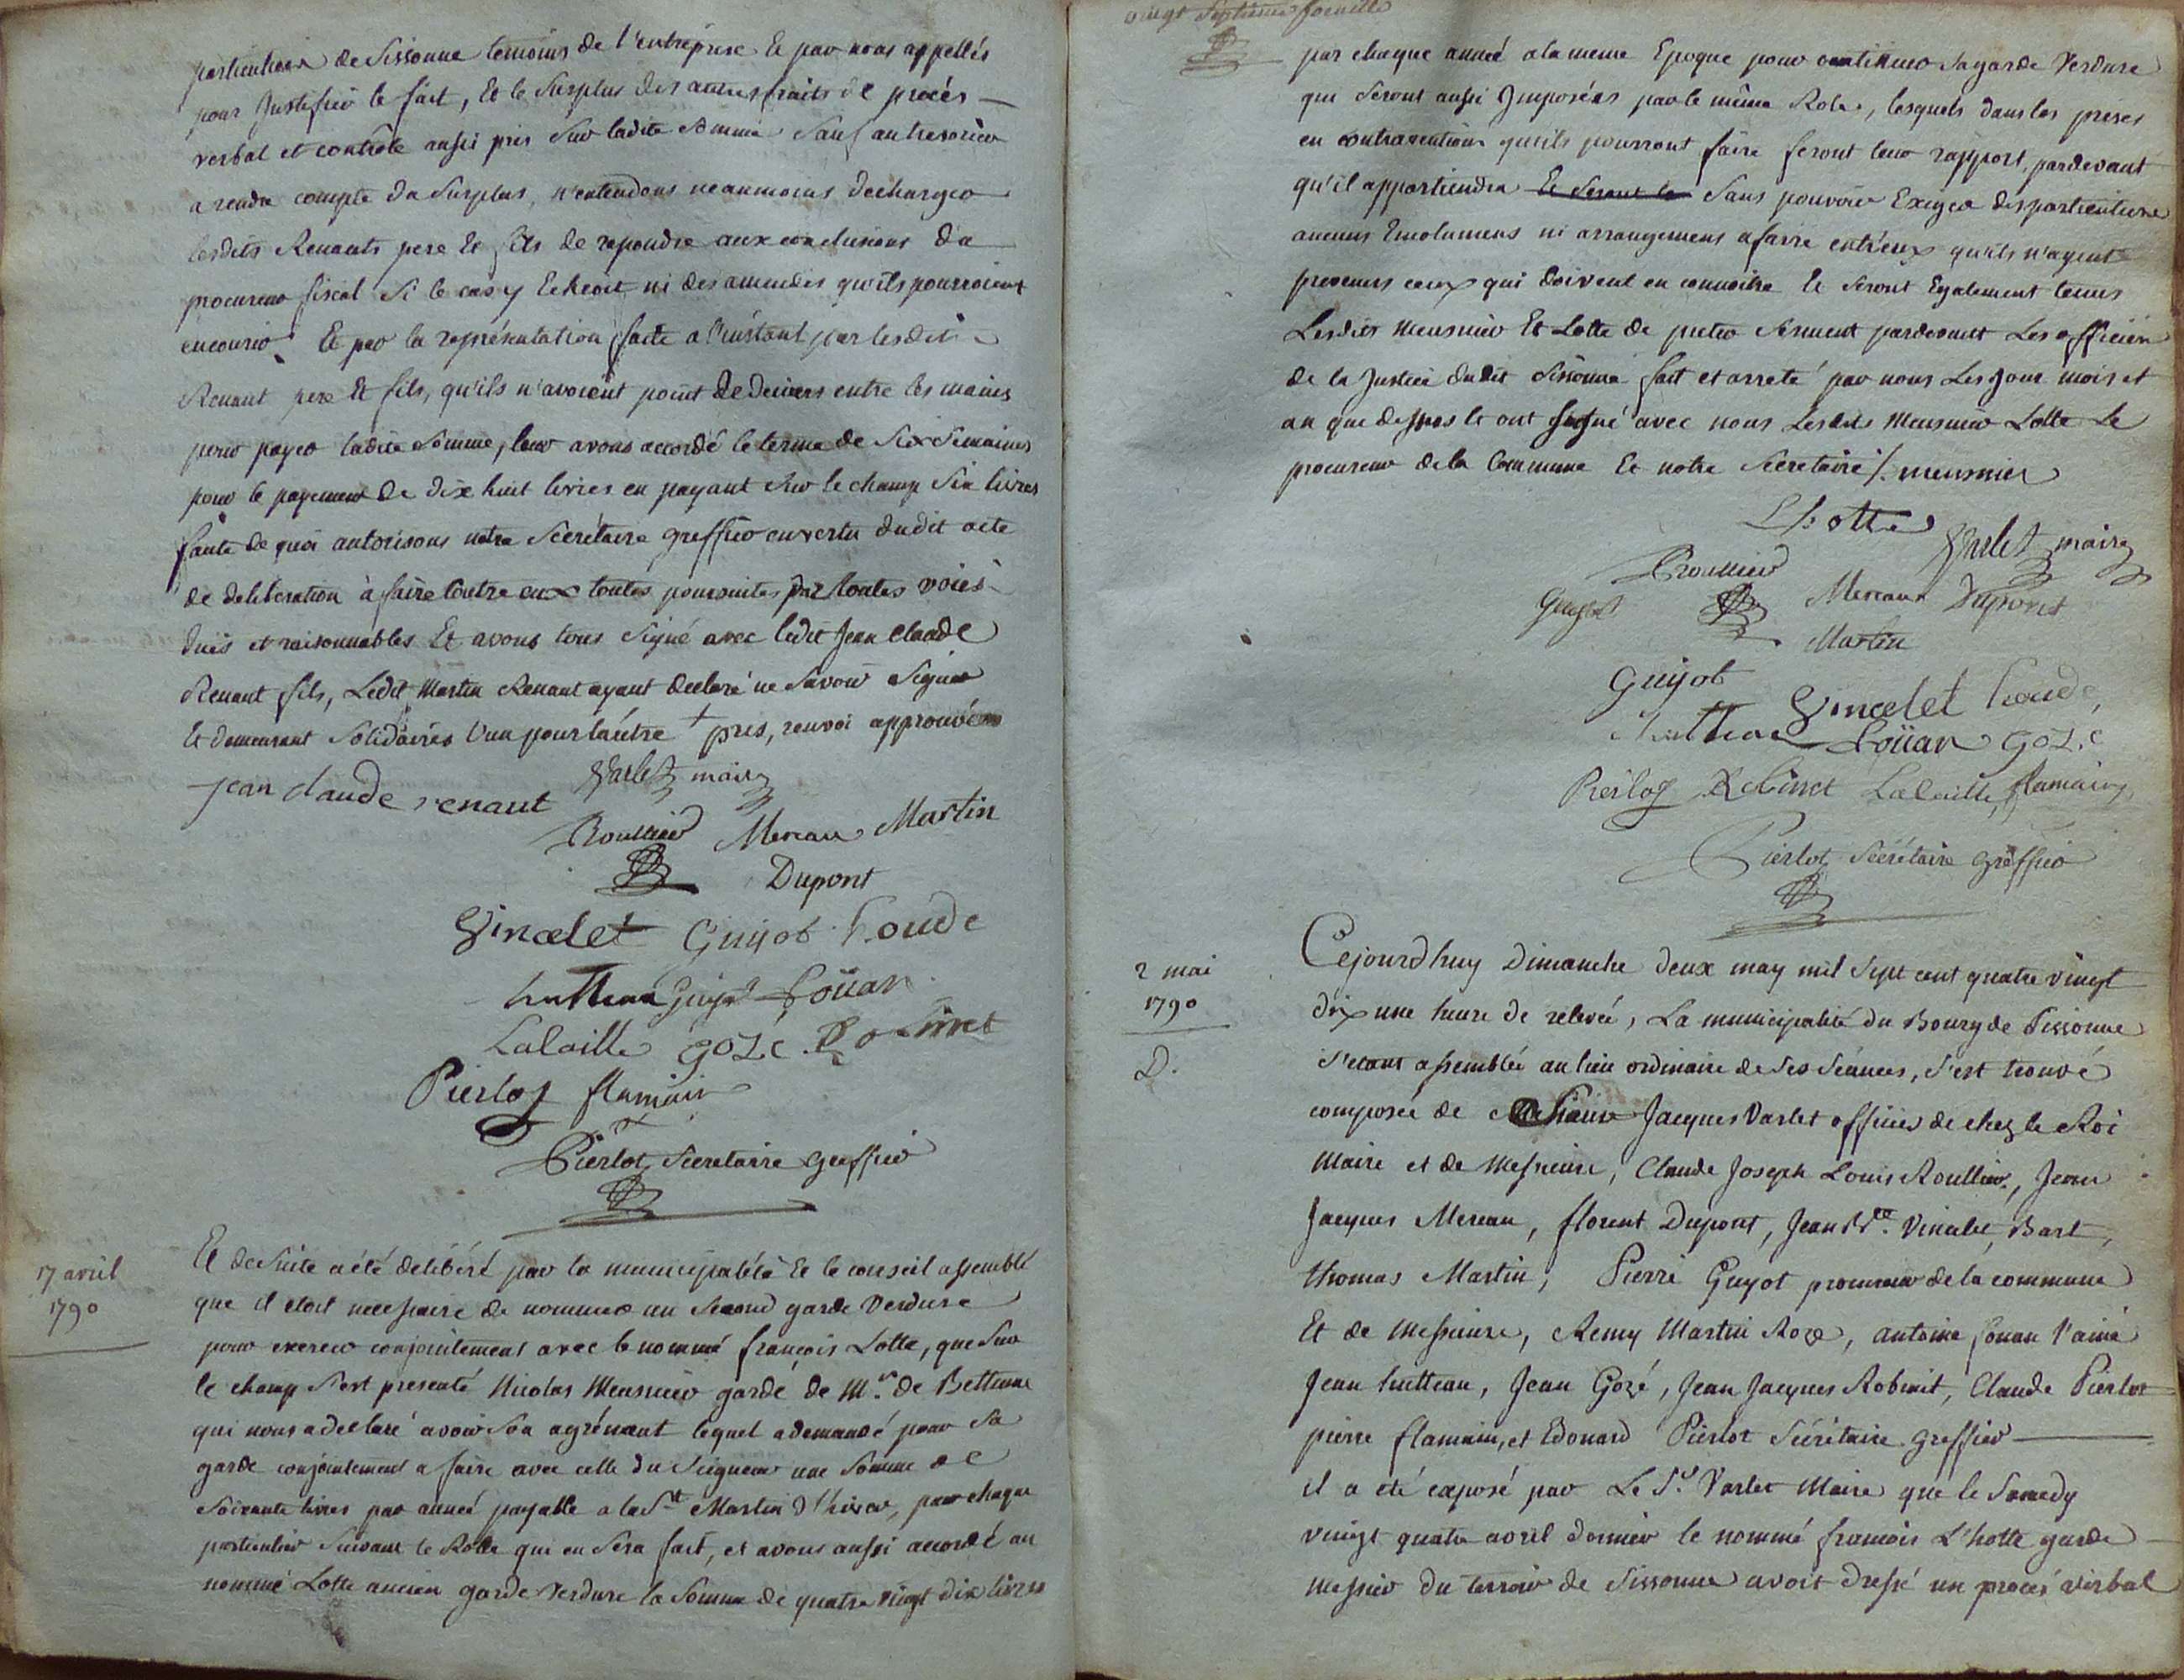 particuliers de Sissonne temoins de l'entreprise Et par nous appellés
pour Justifier le fait, Et le Surplus des autres fraits de procés
verbal et contrôle aussi pris Sur ladite Somme Sauf au tresorier
a rendre compte du Surplus, n'entendons neanmoins decharger
lesdits Renants pere Et fils de repondre aux conclusions du
procureur fiscal Si le cas y Echeoit ni des amendes qu'ils pourroient
encourir. Et par la représentation faite a l'instant par lesdits
Renaut pere Et fils, qu'ils n'avoient point de deniers entre les mains
pour payer ladite Somme, leur avons accordé le terme de Six Semaines
pour le payement de dix huit livres en payant Sur le champ Six livres
faute de quoi autorisons notre Secrétaire greffier en vertu dudit acte
de deliberation à faire contre eux toutes poursuites par toutes voies
duës et raisonnables Et avons tous Signé avec ledit Jean Claude
Renaut fils, Ledit Martin Renaut ayant declaré ne Savoir Signer
Et demeurant Solidaires l'un pour l'autre + pris, renvoi approuvé
jean claude renaut Varlet maire
Roullier Mereau Martin
Dupont
Vincelet Guyot houde
hutteau Guyot Loüan
Lalaille goze Robinet
Pierlot flamain
Pierlot Secretaire greffier
17 avril
1790
Et de Suite a été delibéré par la municipalité Et le conseil assemblé
que il etoit necessaire de nommer un Second garde Verdure
pour exercer conjointement avec le nommé françois Lotte, que Sur
le champ S'est presenté Nicolas Meusnier garde de M.r de Bettune
qui nous a declaré avoir Son agrément lequel a demandé pour Sa
garde conjointement a faire avec celle du Seigneur une Somme de
Soixante livres par année payable a la St Martin d'hiver, par chaque
particulier Suivant le Rolle qui en Sera fait, et avons aussi accordé au
nommé Lotte ancien garde Verdure la Somme de quatre vingt dix livres
vingt Septieme feuille
par chaque année a la meme Epoque pour continuer Sa garde Verdure
qui Seront aussi Imposées par le même Role, lesquels dans les prises
en contravention qu'ils pourront faire feront leur rapport, pardevant
qu'il appartiendra Et Seront le Sans pouvoir Exiger des particuliers
aucuns Emolumens ni arrangemens a faire entr'eux qu'ils n'ayent
prevenus ceux qui doivent en connoitre Et Seront Egalement tenus
Lesdits Meusnier Et Lotte de preter Serment pardevant Les officiers
de la Justice dudit Sissonne fait et arreté par nous Les Jour mois et
an que dessus Et ont Signé avec nous Lesdits Meusnier Lotte Le
procureur de la Commune Et notre Secretaire /. meusnier
Lhotte
Varlet maire
Roullier
Guyot Mereau Dupont
Martin
Guyot
Vincelet houde
hutteau Loüan goze
Pierlot Robinet Lalaille, flamain
Pierlot Secrétaire greffier
2 mai
1790
D.
Cejourd'huy Dimanche deux may mil Sept cent quatre vingt
dix une heure de relevée, La municipalité du Bourg de Sissonne
s'etant assemblée au lieu ordinaire de Ses Séances, s'est trouvé
composée de Messieurs Jacques Varlet officier de chez le Roi
Maire et de Messieurs, Claude Joseph Louis Roullier, Jean
Jacques Mereau, florent Dupont, Jean Bte. Vincelet, Bart,
thomas Martin, Pierre Guyot procureur de la commune
Et de Messieurs, Remy Martin Roze, antoine Louan l'ainé
Jean hutteau, Jean Gozé, Jean Jacques Robinet, Claude Pierlot
pierre flamain, et Edouard Pierlot Secrétaire greffier
il a été exposé par Le Sr. Varlet Maire que le Samedy
vingt quatre avril dernier le nommé francois L'hotte garde
Messier du terroir de Sissonne avoit dressé un procés verbal